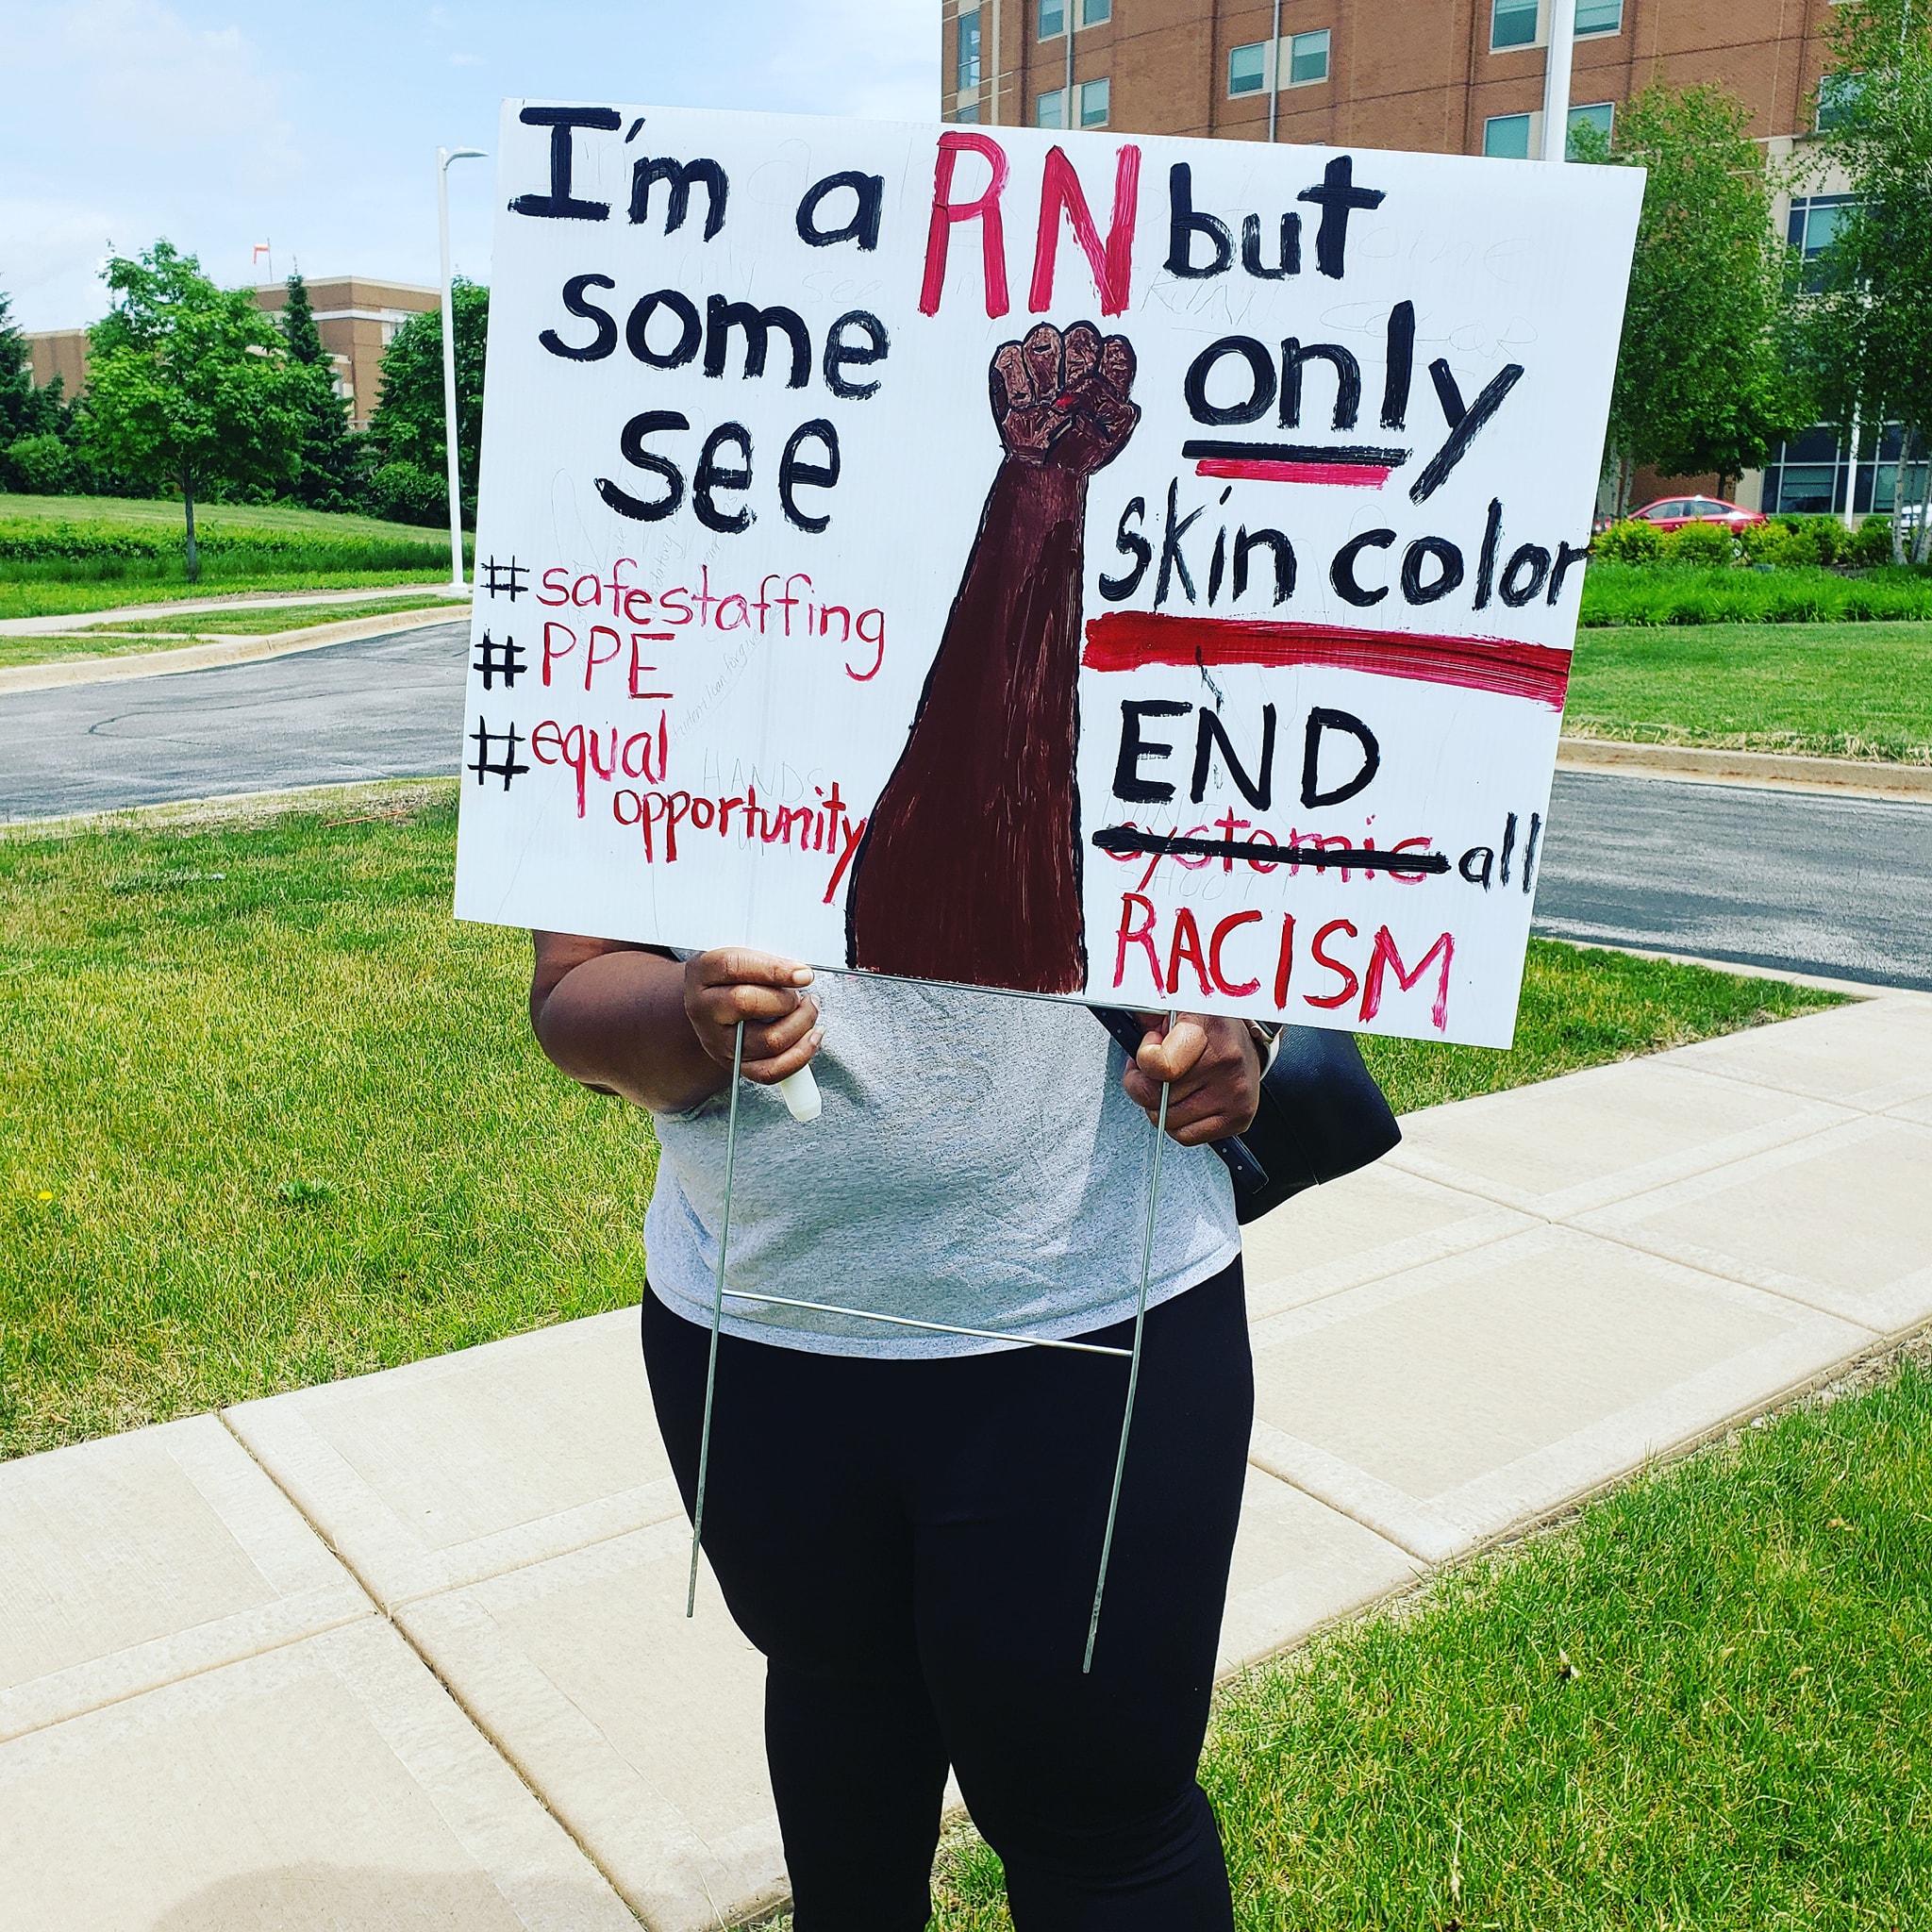 I'm a RN but
some only
see skin color
#safestaffing
#PPE
#equal
opportunity
END
systemic all
RACISM